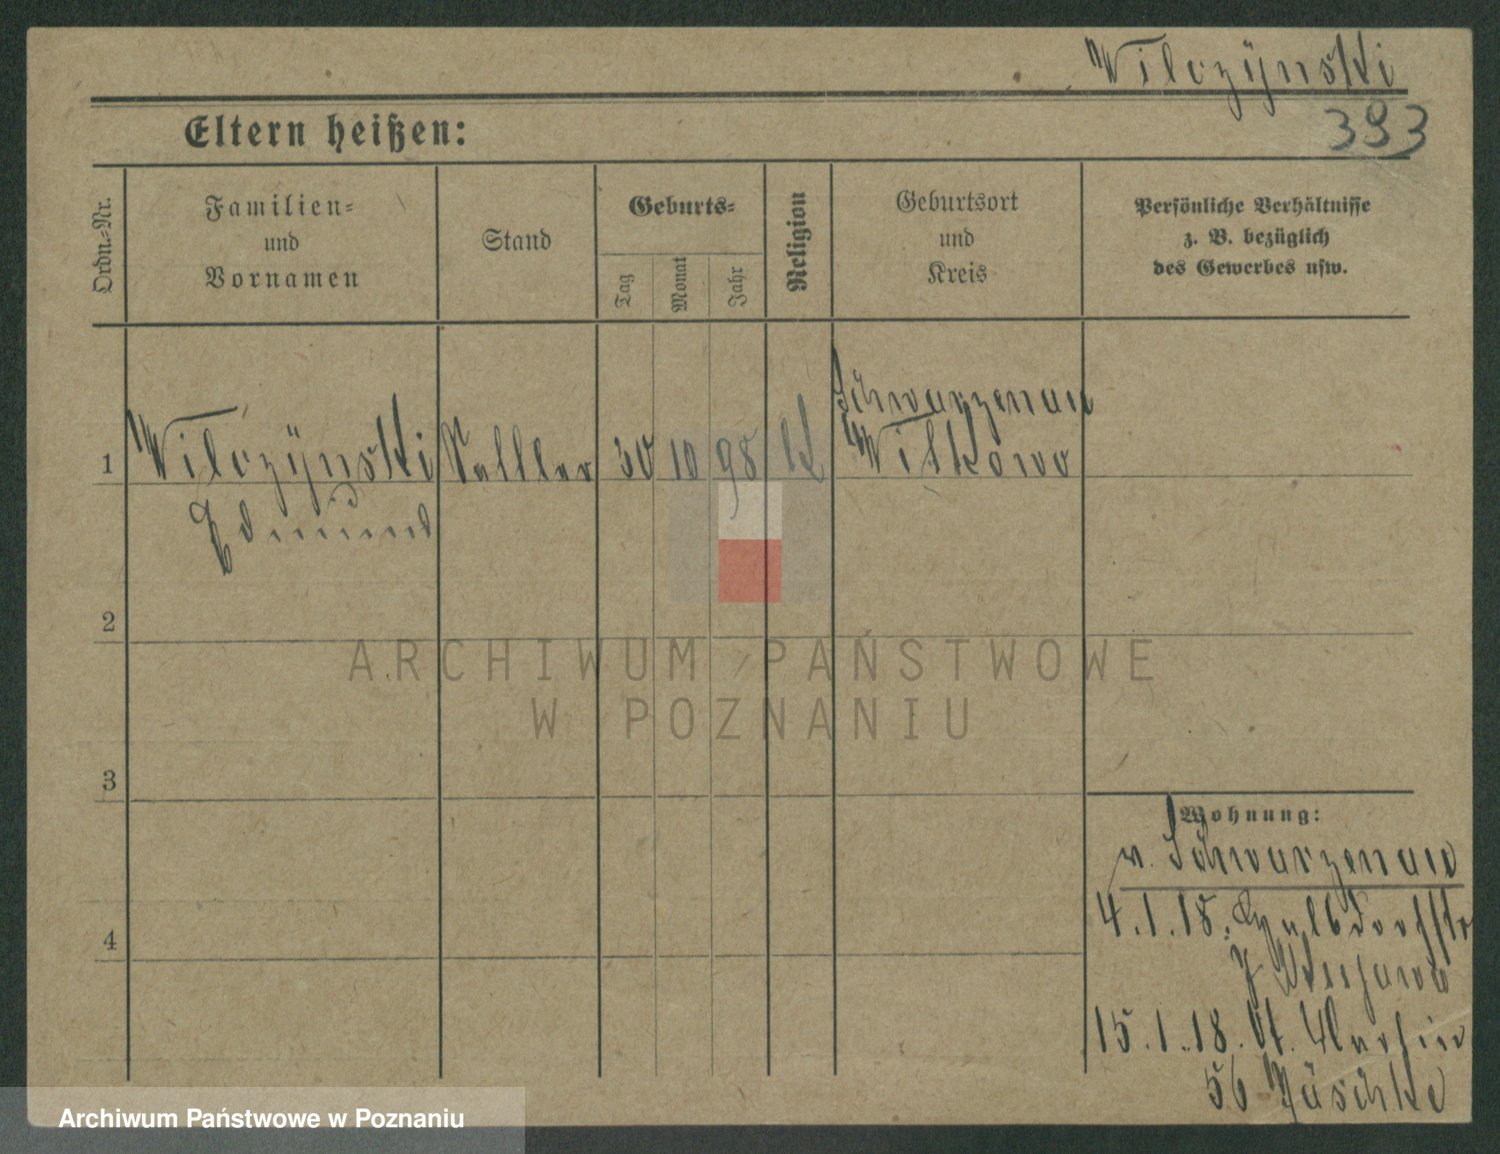 Wilczÿnski
393
Eltern heißen:
Ordn.=Nr.
Familien=
und
Vornamen
Stand
Geburts=
Tag
Monat
Jahr
Religion
Geburtsort
und
Kreis
Persönliche Verhältnisse
z. B. bezüglich
des Gewerbes usw.
Schwarzenau
1 Wilczÿnski 30 10 98 Witkowo
Edmund
2
ARCHIWUM PAŃSTWOWE
W POZNANIU
3
Wohnung:
v. Schwarzenau
4
4.1.18.
15.1.18. St. Martin
56
Archiwum Państwowe w Poznaniu